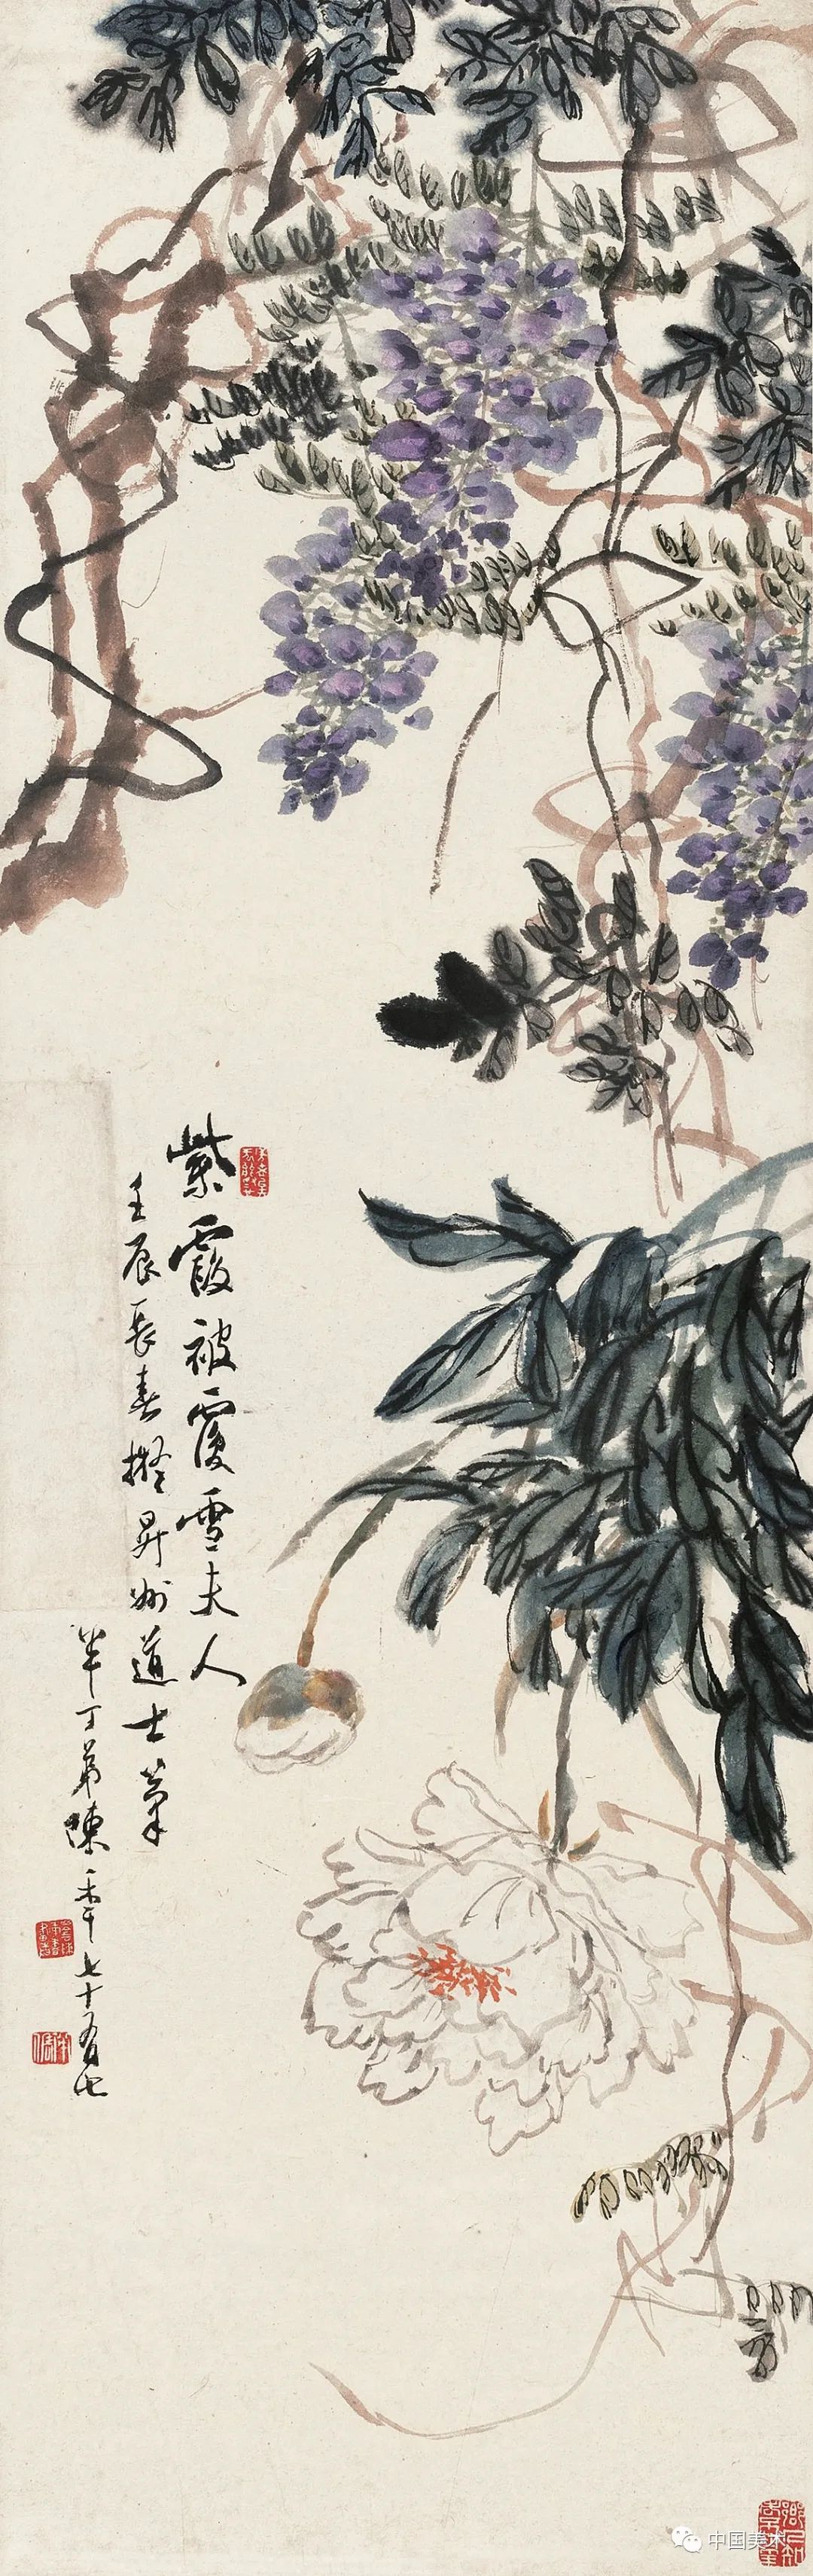 紫霞被覆雪夫人
壬辰長春擬昇州道士筆
半丁弟陳年七十有七
中国美术